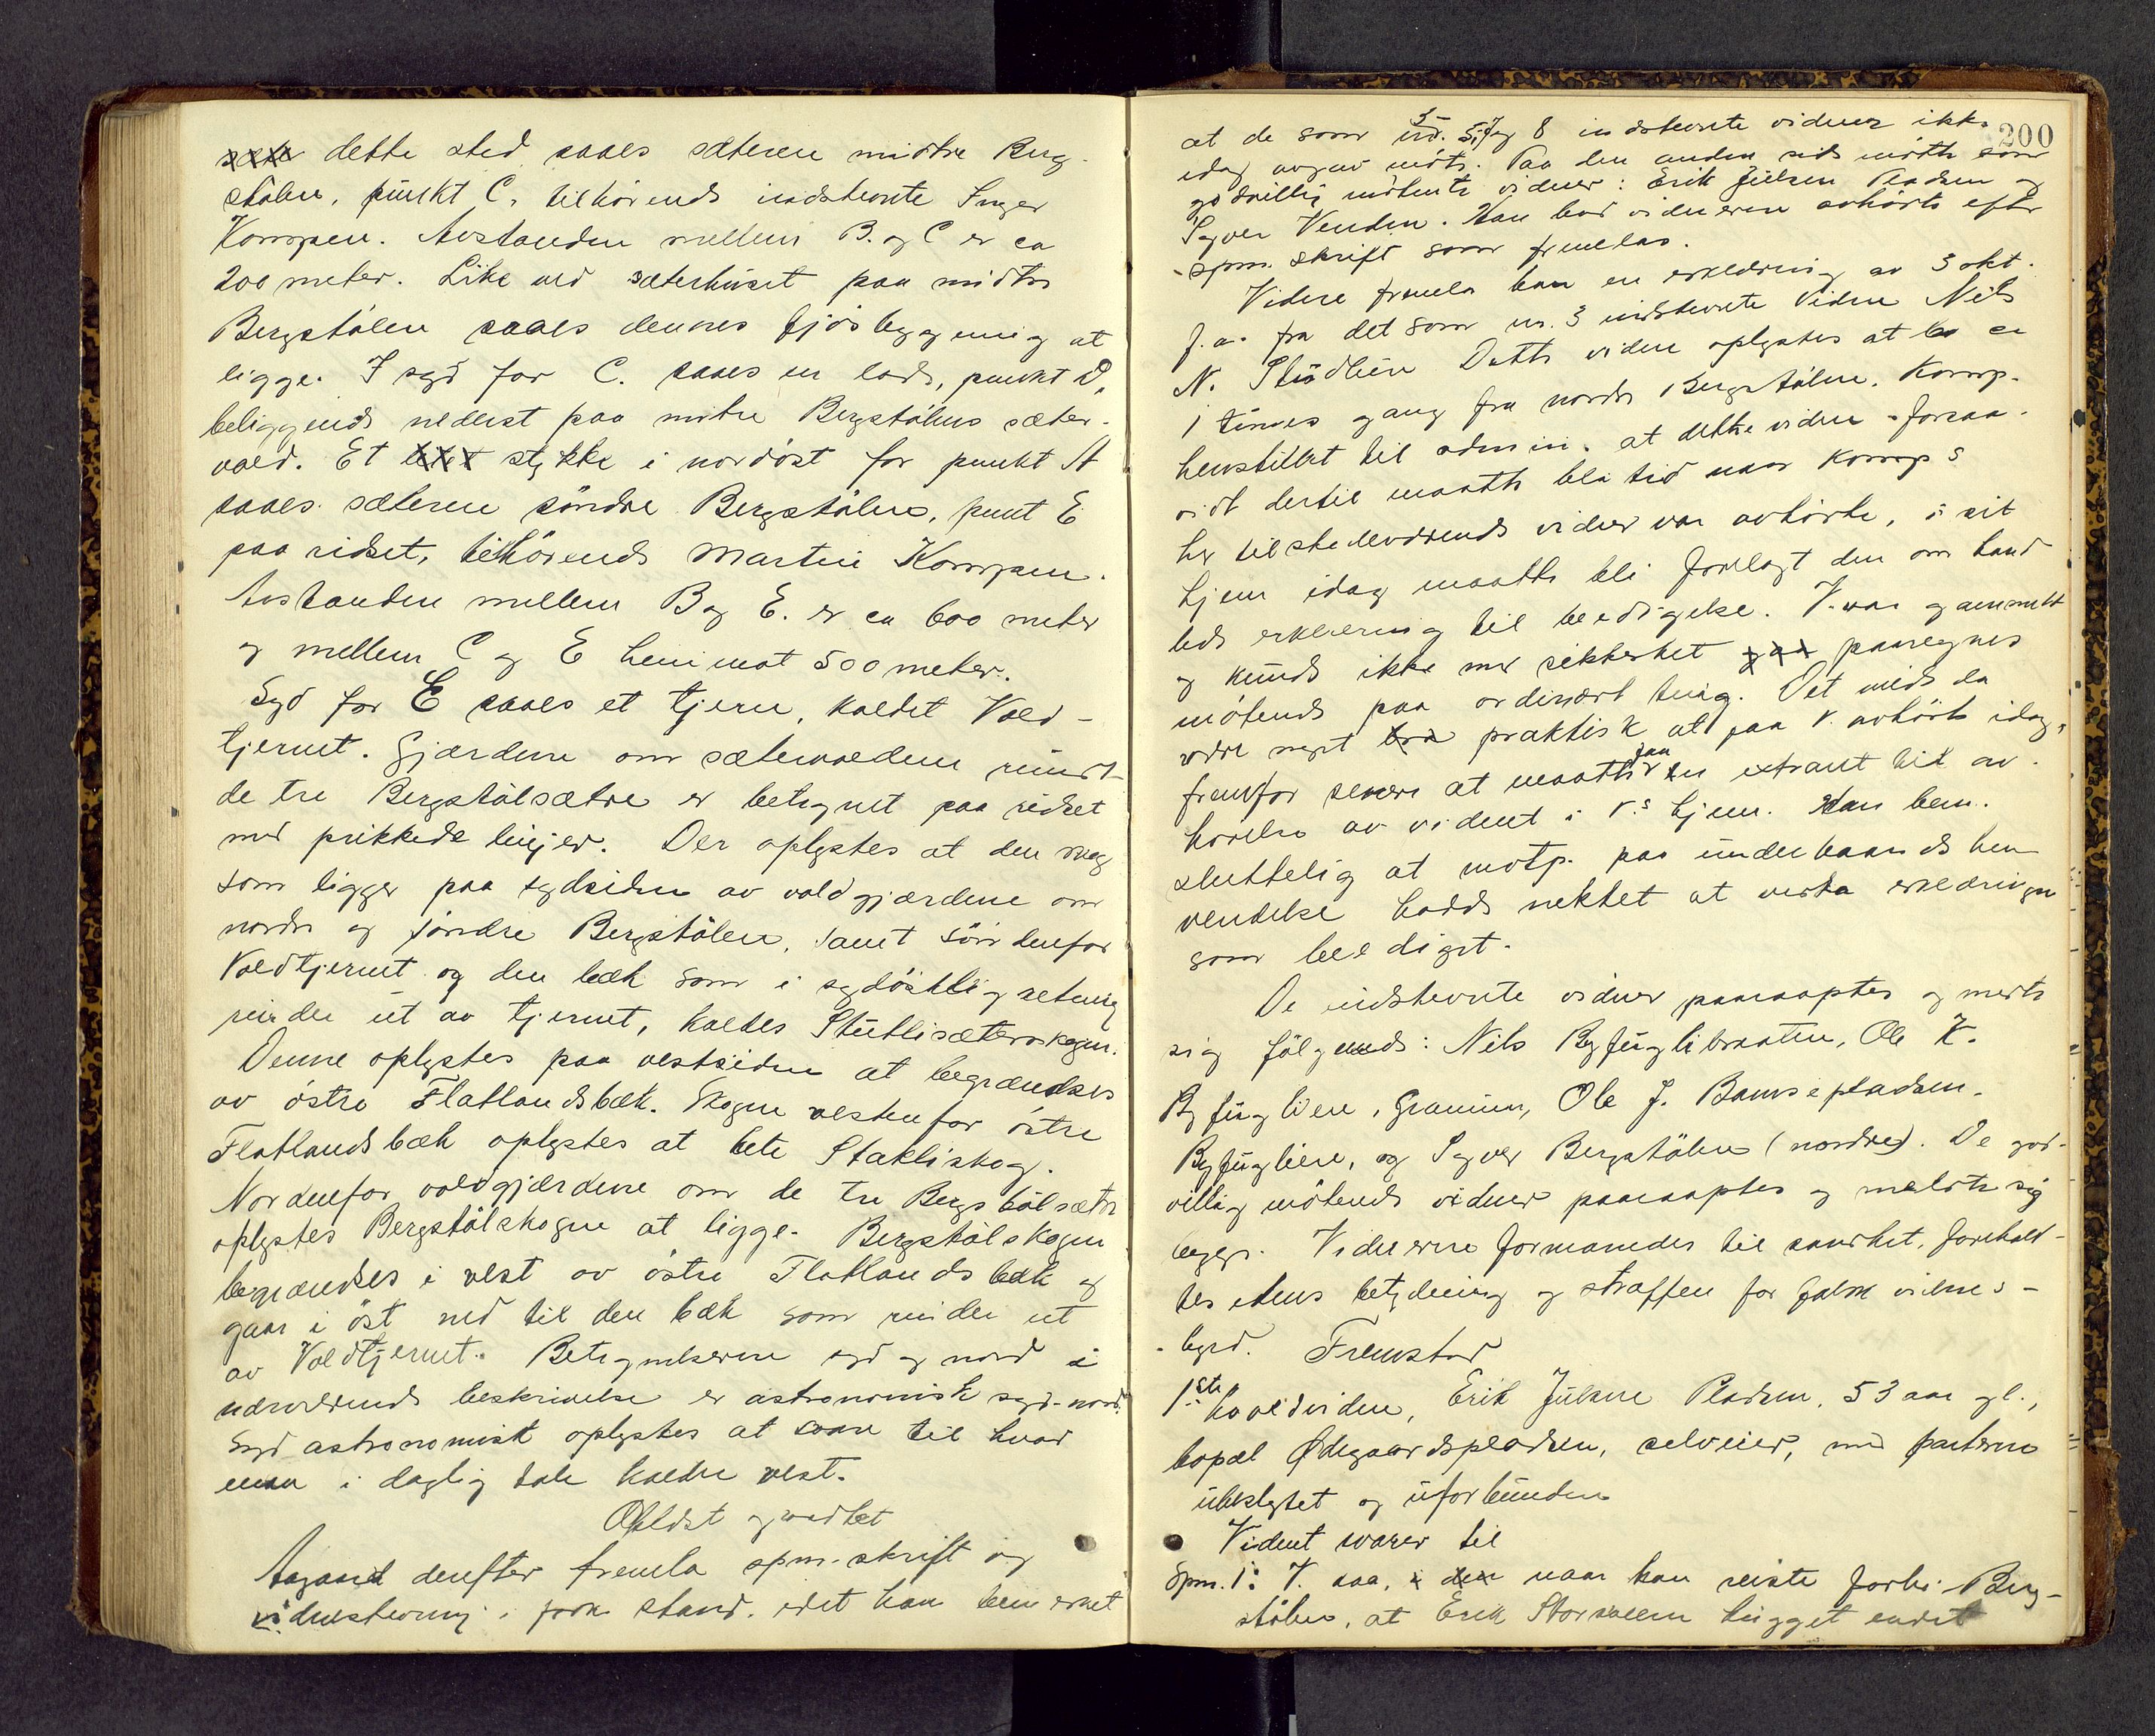 dette sted saaes sæteren midtre Berg-
stölen, punkt C, tilhörende indstevnte Inger
Kompen. Avstanden mellem B. og C er ca
200 meter. Like ved sæterhuset paa midtre
Bergstölen saaes dennes fjösbygning at
ligge. I syd for C. saaes en lade, punkt D,
beliggende nederst paa mitre Bergstölens sæter-
vold. Et stykke i nordöst for punkt A
saaes sæteren söndre Bergstölen, punt E
paa ridset, tilhörende Martin Kompen.
Avstanden mellem B og E. er ca 600 meter
og mellem C og E henimot 500 meter.
Syd for E saaes et tjern, kaldet Vold-
tjernet. Gjærdene om sætervoldene rundt
de tre Bergstölsætre er betegnet paa ridset
med prikkede linjer. Der oplystes at den skog
som ligger paa sydsiden av voldgjærdene om
nordre og söndre Bergstölen, samt söndenfor
Voldtjernet og den bæk som i sydöstlig retning
rinder ut av tjernet, kaldes Stutlisæterskogen.
Denne oplystes paa vestsiden at begrændses
av östre Flatlandsbæk. Skogen vestenfor östre
Flatlandsbæk oplystes at hete Stakliskog.
Nordenfor voldgjærdene om de tre Bergstölsætre
oplystes Bergstölskogen at ligge. Bergstölskogen
begrændses i vest av östre Flatlandsbæk og
gaar i öst ned til den bæk som rinder ut
av Voldtjernet. Betegnelserne syd og nord i
nærværende beskrivelse er astronomisk syd-nord.
Syd astronomisk oplystes at svare til hvad
man i daglig tale kalder vest.
Oplæst og vedtat
Aagaard derefter fremla spm.-skrift og
vidnestevning i fork. stand. idet han bemerket
200
at de som nr. 5, 7 og 8 indstevnte vidner ikke
idag avgav möte. Paa den anden side mötte som
godvillig mötende vidner: Erik Julsen Pladsen og
Syver Venden. Han bad vidnerne avhört efter
spm. skrift som fremlas.
Videre fremla han en erklæring av 3 okt.
f.a. fra det som nr. 3 indstevnte vidne Nils
N. Stödlien Dette vidne oplystes at bo ca
1 times gang fra nordre Bergstölen. Komp.
henstillet til admin. at dette vidne - forsaa-
vidt dertil maatte bli tid naar Komp s
her tilstedeværende vidner var avhörte, i sit
hjem idag maatte bli forelagt den om hand
lede erklæring til beedigelse. V. var gammelt
og kunde ikke med sikkerhet paaregnes
mötende paa ordinært ting. Det vilde da
være meget praktisk at faa V. avhört idag,
fremfor senere at maatte faa en extraret hit av-
hörelse av vidnet i V.s hjem. Han bem.
sluttelig at motp. paa underhaands hen
vendelse hadde nektet at vedta erklæringen
som beediget.
De indstevnte vidner paaraaptes og meldte
sig fölgende: Nils Byfuglibraaten, Ole K.
Byfuglien, Gramen, Ole J. Bamsepladsen.
Byfuglien, og Syver Bergstölen (nordre). De god-
villig mötende vidner paaraaptes og meldte sig
begge. Vidnerne formanedes til sandhet, forehold-
tes edens betydning og straffen for falsk vidnes-
byrd. Fremstod
1ste hovedvidne, Erik Julsen Pladsen, 53 aar gl.,
bopæl Ødegaardspladsen, selveier, med parterne
ubeslegtet og uforbunden
Vidnet svarer til
Spm. 1: V. saa, naar han reiste forbi Berg-
stölen, at Erik Storsveen hugget endel